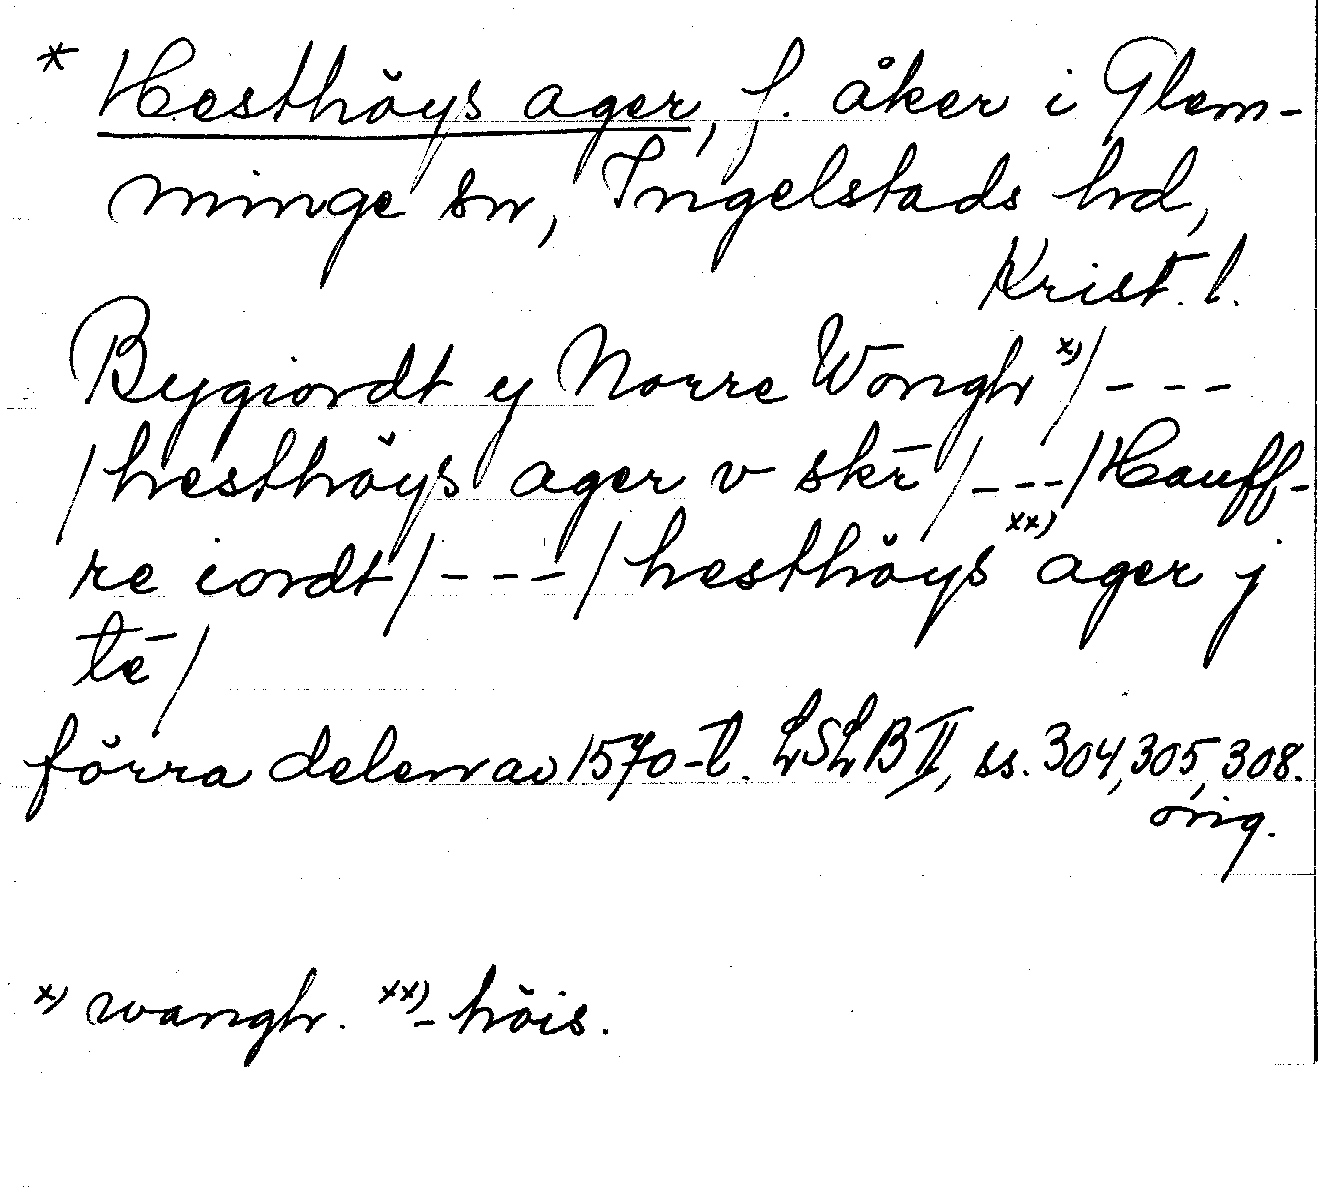 * Hesthöys ager, f. åker i Glem-
minge sn, Ingelstads hd,
Krist. l.
Bygiordt y Norre Wongh x)/ - - -
/ hesthöys ager v skr̄ / - - - / Hauff-
re iordt / - - - / hesthöys xx) ager j
tē /
förra delen av 1570-t. LSLB II, ss. 304, 305, 308.
orig.
x) wangh. xx) - höis.